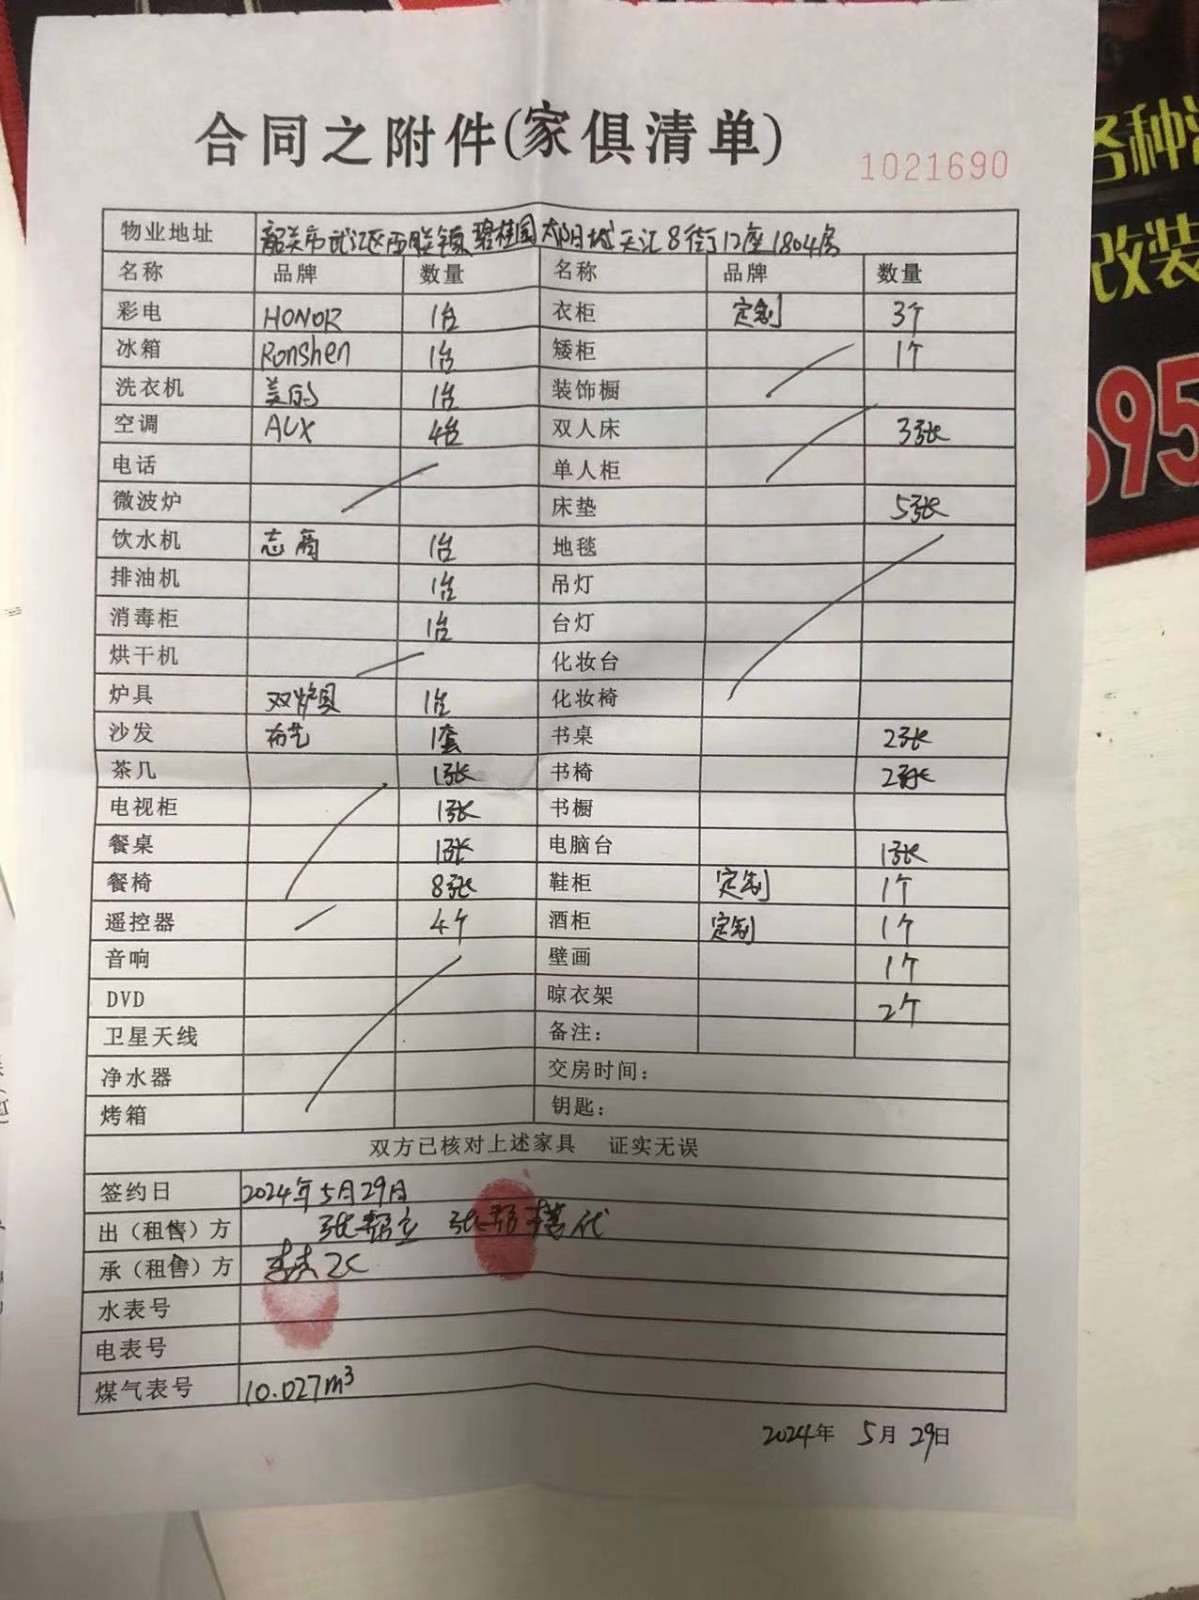 合同之附件(家俱清单)
1021690
各种
改装
695
物业地址 韶关市武江区西联镇碧桂园太阳城天汇8街12座1804房
名称 品牌 数量 名称 品牌 数量
彩电 HONOR 1台 衣柜 定制 3个
冰箱 Ronshen 1台 矮柜 1个
洗衣机 美的 1台 装饰橱
空调 AUX 4台 双人床 3张
电话 单人柜
微波炉 床垫 5张
饮水机 志高 1台 地毯
排油机 1台 吊灯
消毒柜 1台 台灯
烘干机 化妆台
炉具 双炉具 1台 化妆椅
沙发 布艺 1套 书桌 2张
茶几 1张 书椅 2张
电视柜 1张 书橱
餐桌 1张 电脑台 1张
餐椅 8张 鞋柜 定制 1个
遥控器 4个 酒柜 定制 1个
音响 壁画 1个
DVD 晾衣架 2个
卫星天线 备注：
净水器 交房时间：
烤箱 钥匙：
双方已核对上述家具 证实无误
签约日 2024年5月29日
出（租售）方 张帮立 张帮 代
承（租售）方
水表号
电表号
煤气表号 10.027m³
2024年 5月 29日